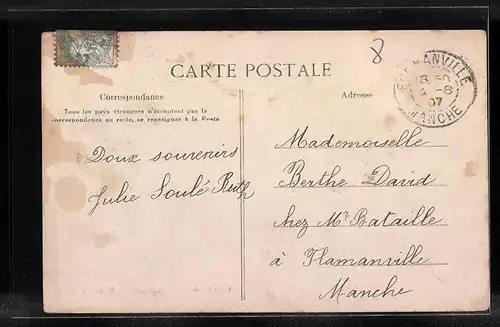 8
FLAMANVILLE
MANCHE
8 50
4 -8
07
CARTE POSTALE
Correspondance
Adresse
Tous les pays étrangers n'acceptent pas la
correspondance au recto, se renseigner à la Poste
Doux souvenirs
Julie Soulé Ruth
Mademoiselle
Berthe David
chez Mr. Bataille
à Flamanville
Manche